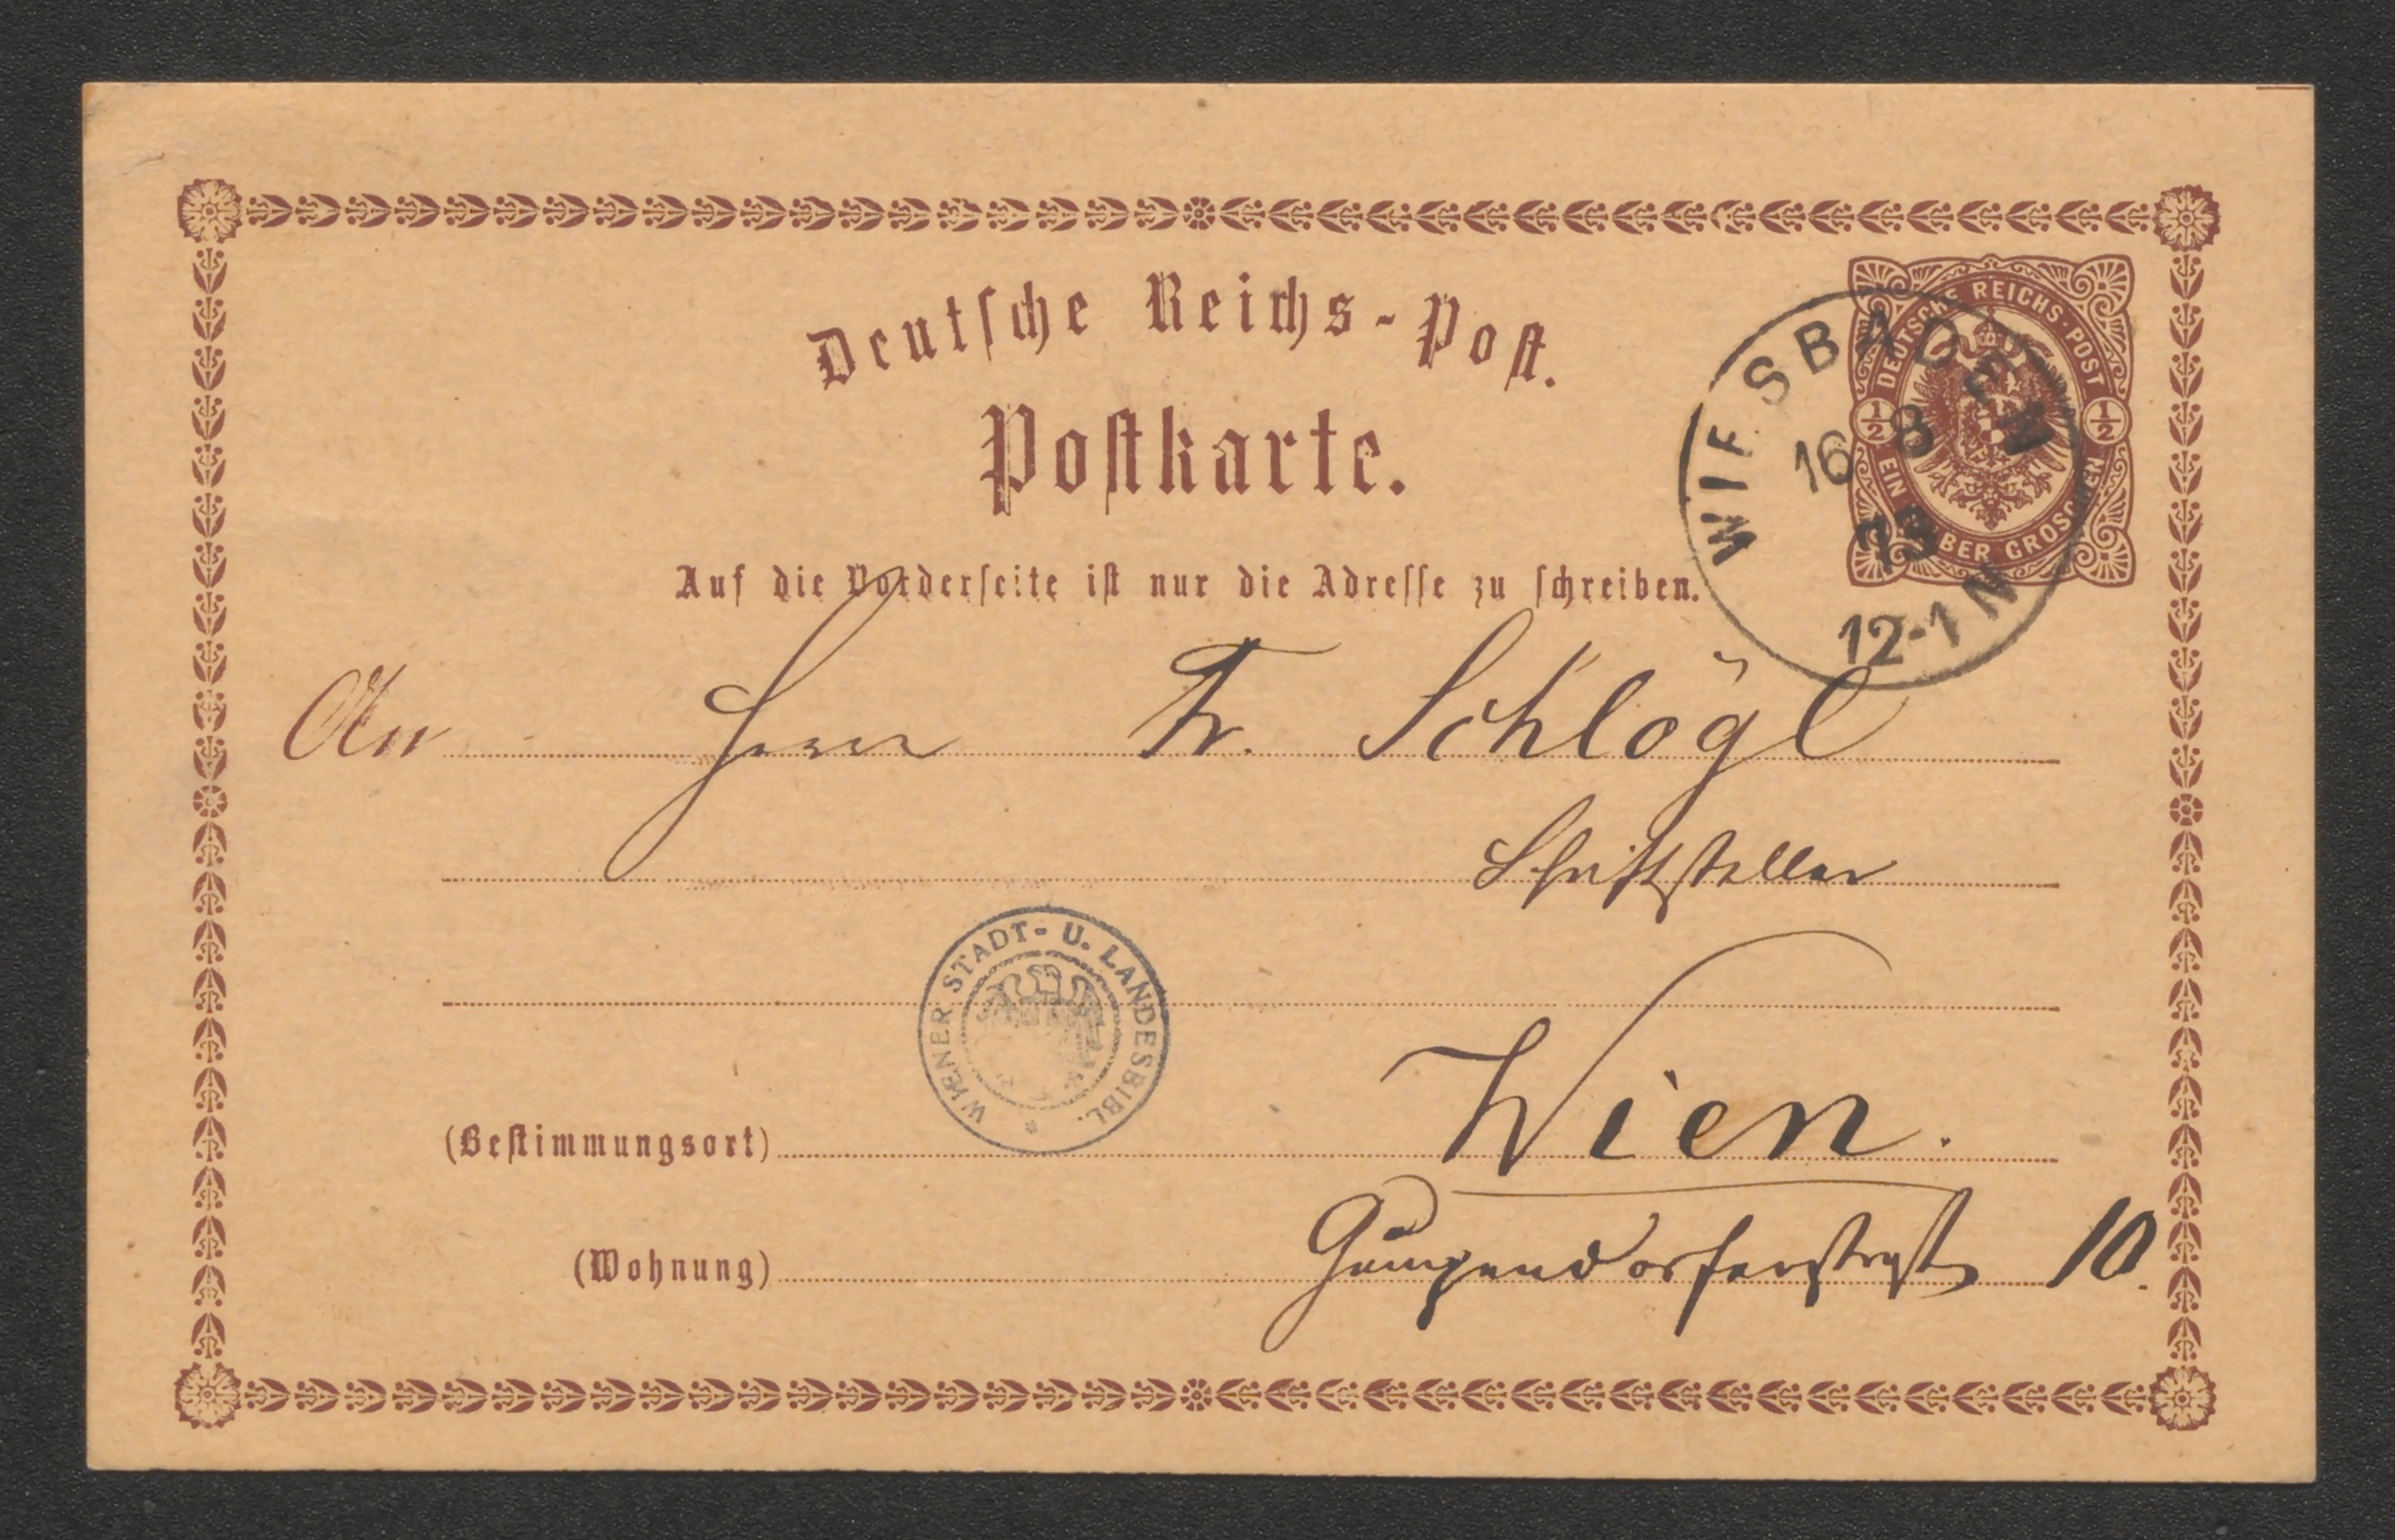 Deutsche Reichs-Post.
Postkarte.
DEUTSCHE REICHS-POST
1/2 1/2
EIN HALBER GROSCHEN
WIESBADEN
16 8
73
12-1 N
Auf die Vorderseite ist nur die Adresse zu schreiben.
An Herrn Fr. Schlögl
Schriftsteller
WIENER STADT- U. LANDESBIBL.
(Bestimmungsort) Wien.
(Wohnung) Gumpendorferstraße 10.